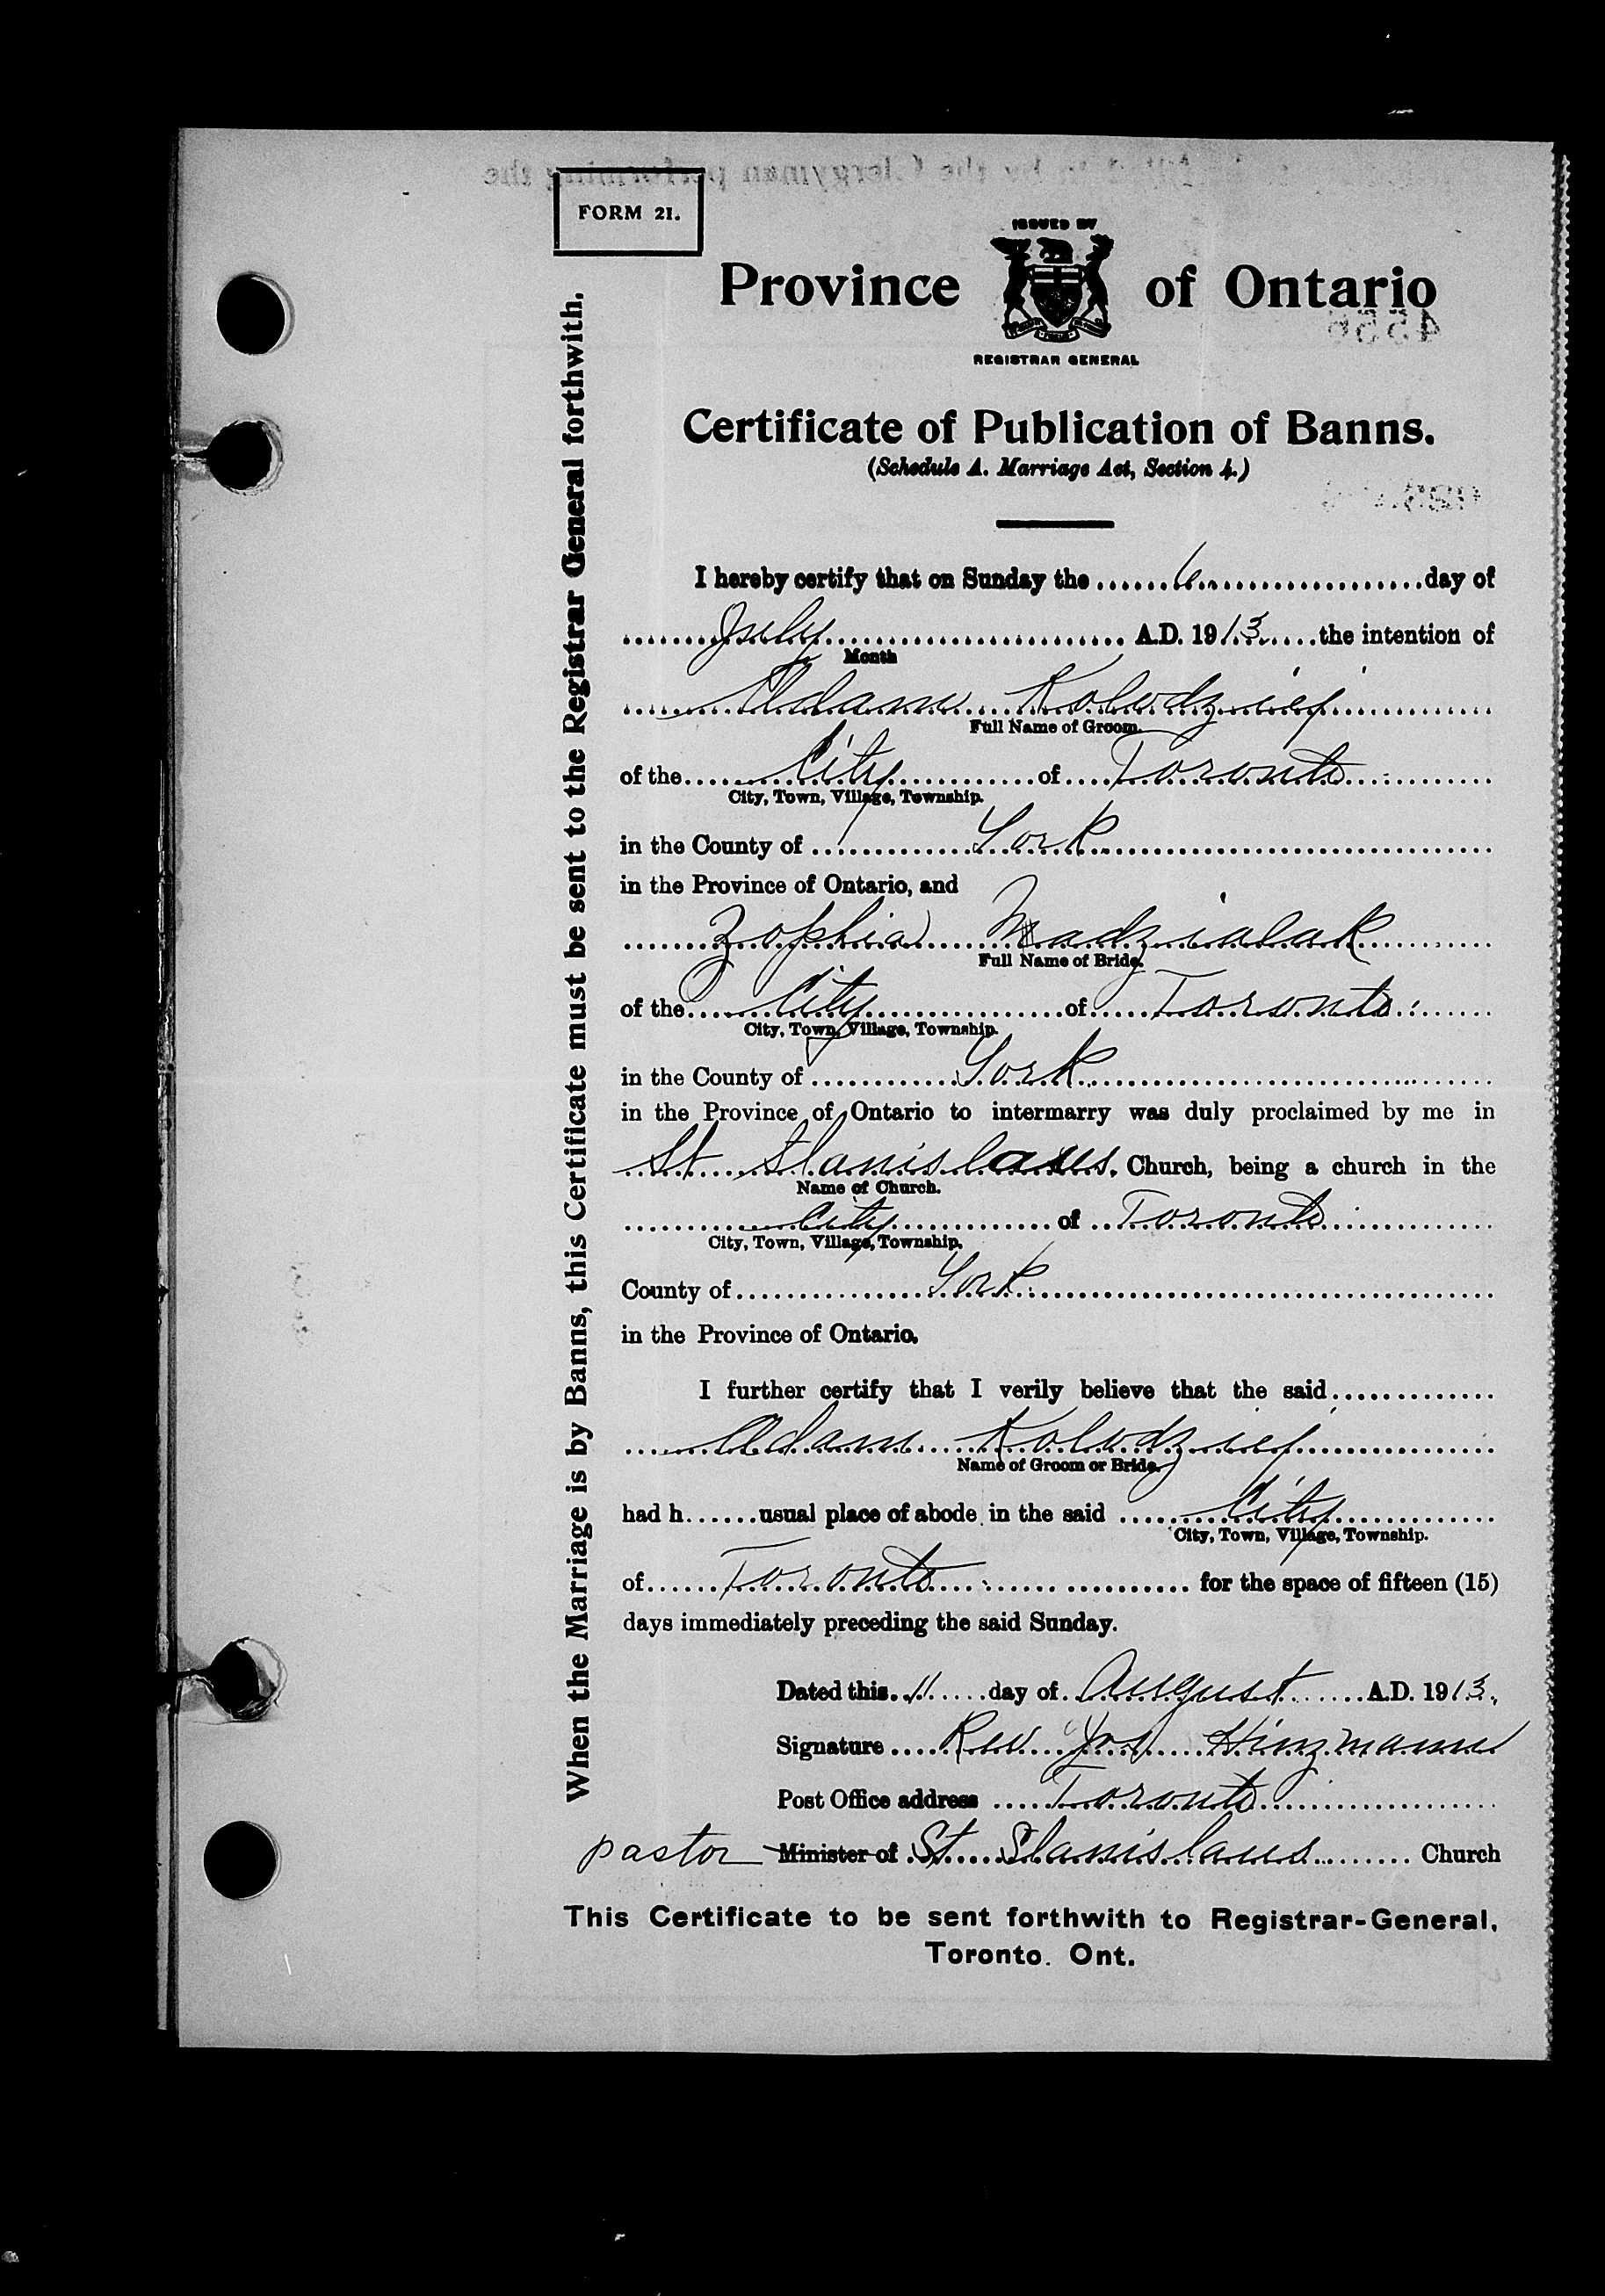 FORM 21.
ISSUED BY
Province of Ontario
REGISTRAR GENERAL
Certificate of Publication of Banns.
(Schedule A. Marriage Act, Section 4.)
I hereby certify that on Sunday the 6 day of
July A.D. 1913 the intention of
Month
Adam Kolodziej
Full Name of Groom.
of the City of Toronto
City, Town, Village, Township.
in the County of York
in the Province of Ontario, and
Zophia Madzialak
Full Name of Bride.
of the City of Toronto
City, Town, Village, Township.
in the County of York
in the Province of Ontario to intermarry was duly proclaimed by me in
St Stanislaus Church, being a church in the
Name of Church.
City of Toronto
City, Town, Village, Township.
County of York
in the Province of Ontario.
I further certify that I verily believe that the said
Adam Kolodziej
Name of Groom or Bride.
had h......usual place of abode in the said City
City, Town, Village, Township.
of Toronto for the space of fifteen (15)
days immediately preceding the said Sunday.
Dated this 11 day of August A.D. 1913.
Signature Rev Jos Hinzmann
Post Office address Toronto
pastor Minister of St. Stanislaus Church
This Certificate to be sent forthwith to Registrar-General,
Toronto. Ont.
When the Marriage is by Banns, this Certificate must be sent to the Registrar General forthwith.